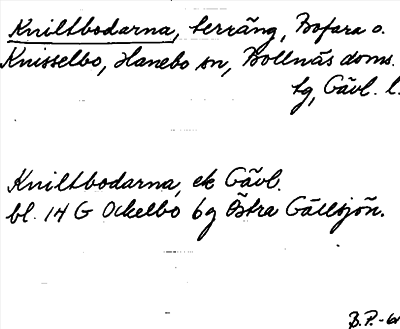 Kniltbodarna, terräng, Bofara o.
Knisselbo, Hanebo sn, Bollnäs doms.
tg, Gävl. l.
Kniltbodarna, ek Gävl.
bl. 14 G Ockelbo 6g Östra Gällsjön.
B.P.-61